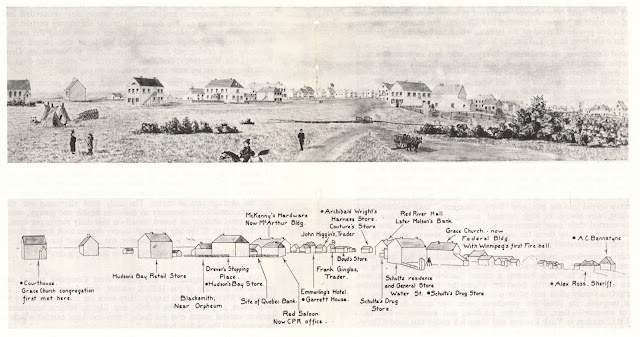 McKenny's Hardware
Now McArthur Bldg.
• Archibald Wright's
Harness Store
Couture's Store
John Higgin's, Trader
Red River Hall.
Later Molson's Bank.
Grace Church - now
Federal Bldg
With Winnipeg's first Fire bell.
• A.C. Bannatyne
• Courthouse
Grace Church congregation
first met here.
Hudson's Bay Retail Store
Drever's Stopping
Place
• Hudson's Bay Store.
Blacksmith,
Near Orpheum
Site of Quebec Bank.
Red Saloon
Now CPR office.
Emmerling's Hotel.
• Garrett House.
Boyd's Store.
Frank Ginglas,
Trader.
Schultz residence
and General Store
Water St. • Schultz's Drug Store.
Schultz's Drug
Store.
• Alex Ross, Sheriff.